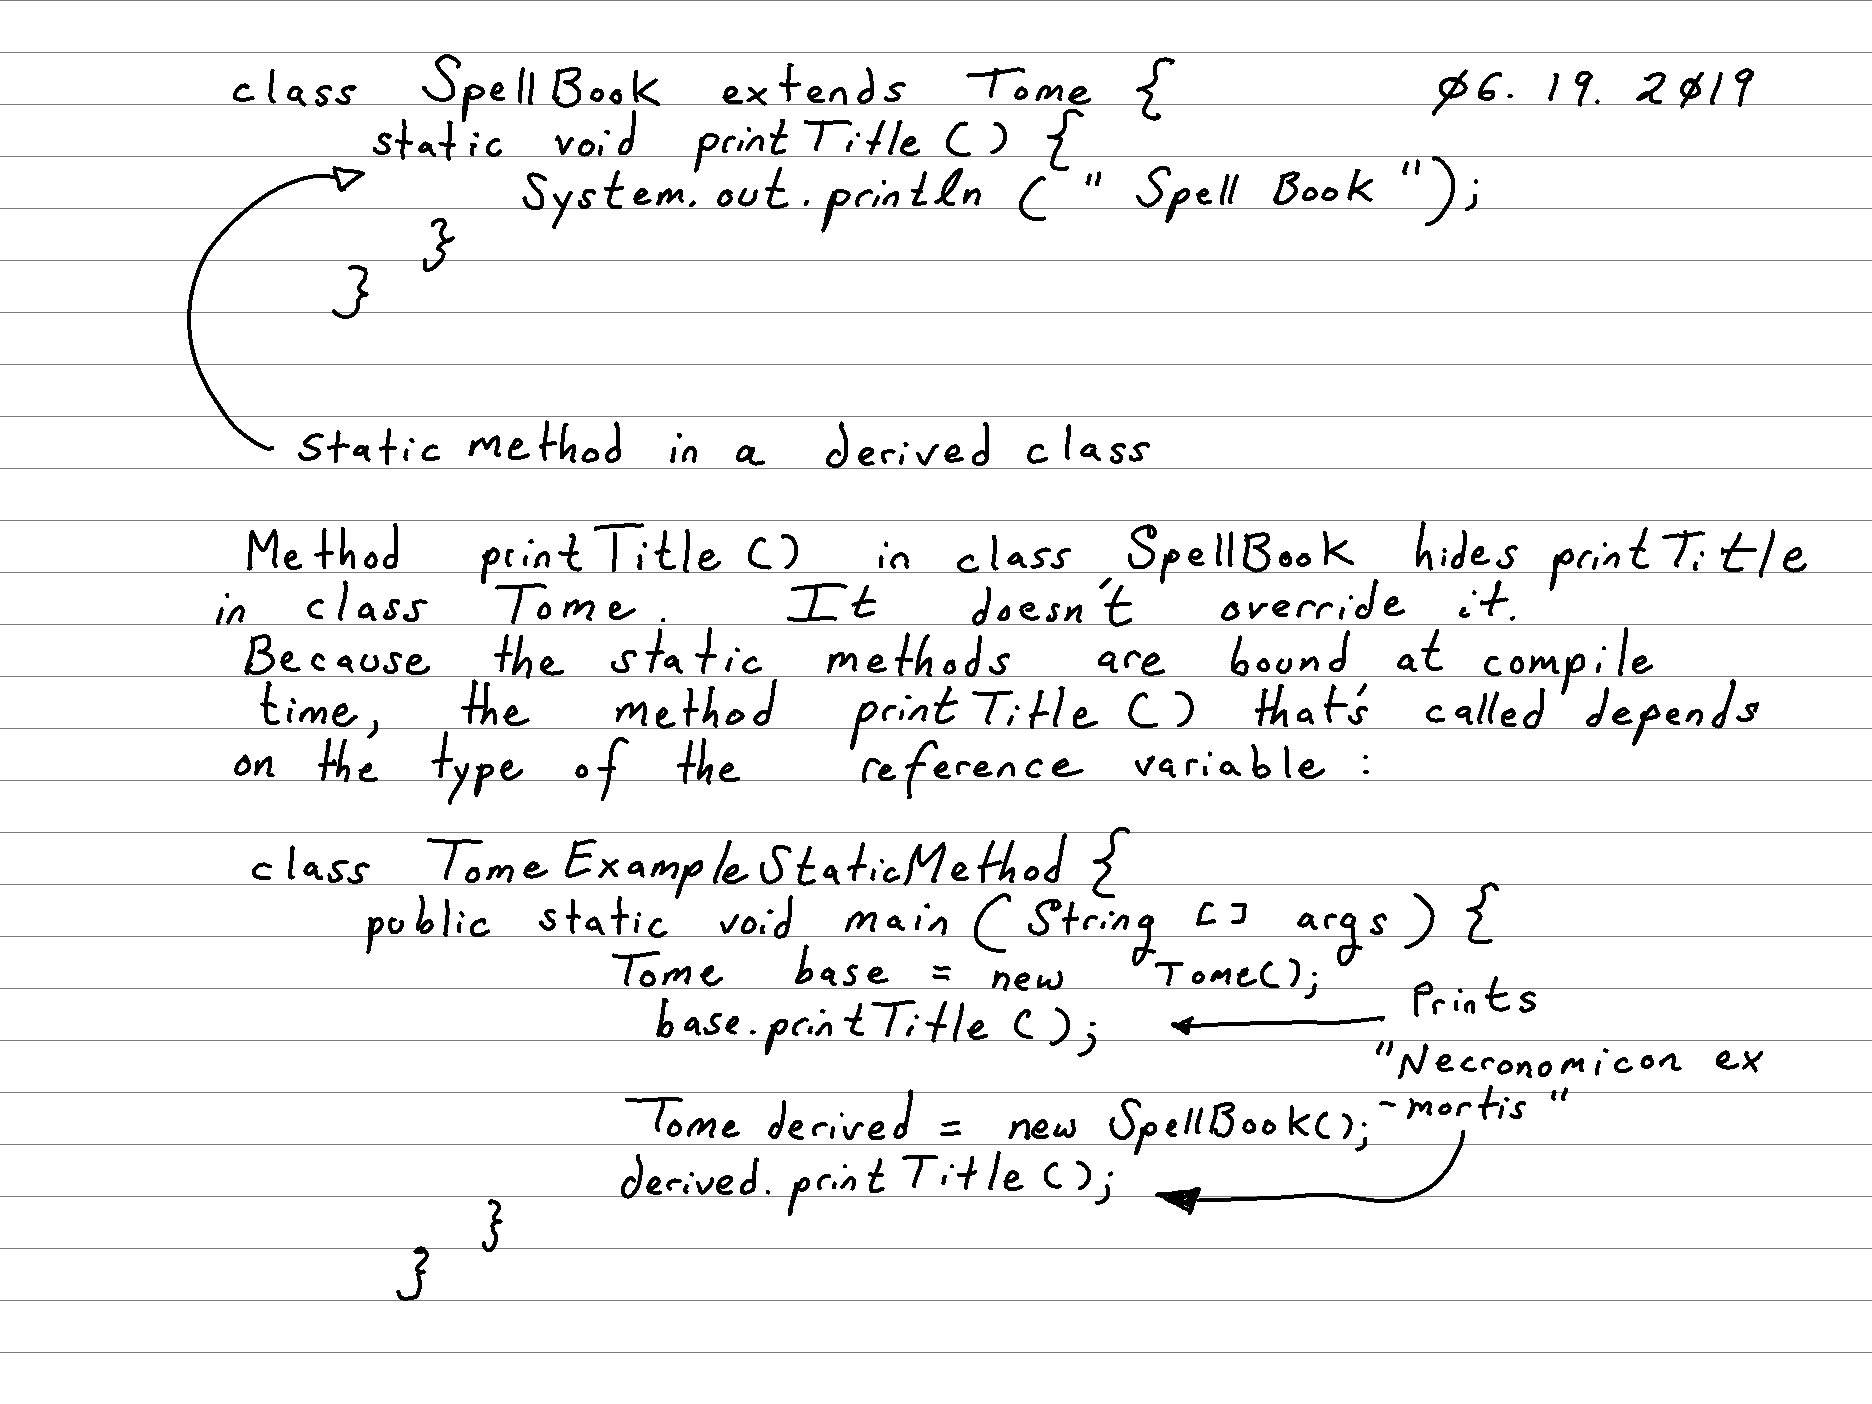 class SpellBook extends Tome { Ø6. 19. 2Ø19
static void printTitle () {
System.out.println (" Spell Book ");
}
}
static method in a derived class
Method printTitle () in class SpellBook hides printTitle
in class Tome. It doesn't override it.
Because the static methods are bound at compile
time, the method printTitle () that's called depends
on the type of the reference variable :
class TomeExampleStaticMethod {
public static void main (String [] args) {
Tome base = new Tome();
base.printTitle (); Prints
"Necronomicon ex
Tome derived = new SpellBook(); -mortis"
derived.printTitle ();
}
}